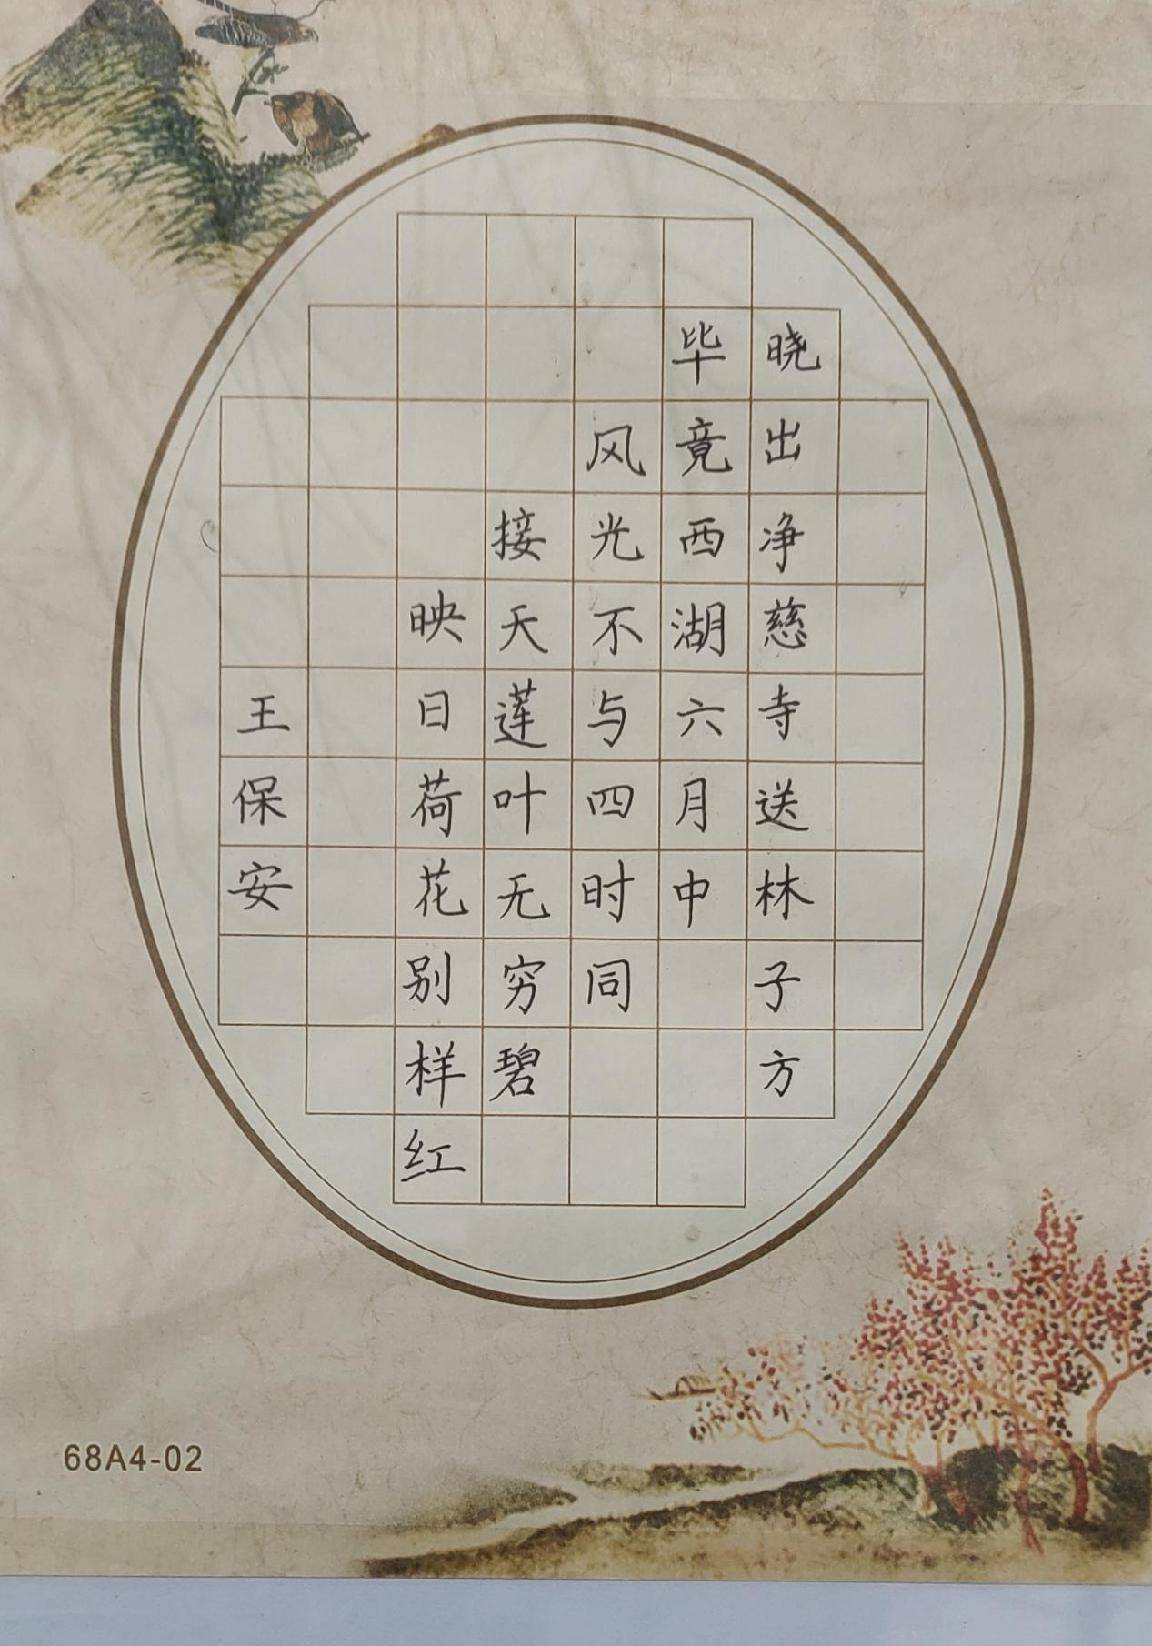 晓出净慈寺送林子方
毕竟西湖六月中
风光不与四时同
接天莲叶无穷碧
映日荷花别样红
王保安
68A4-02